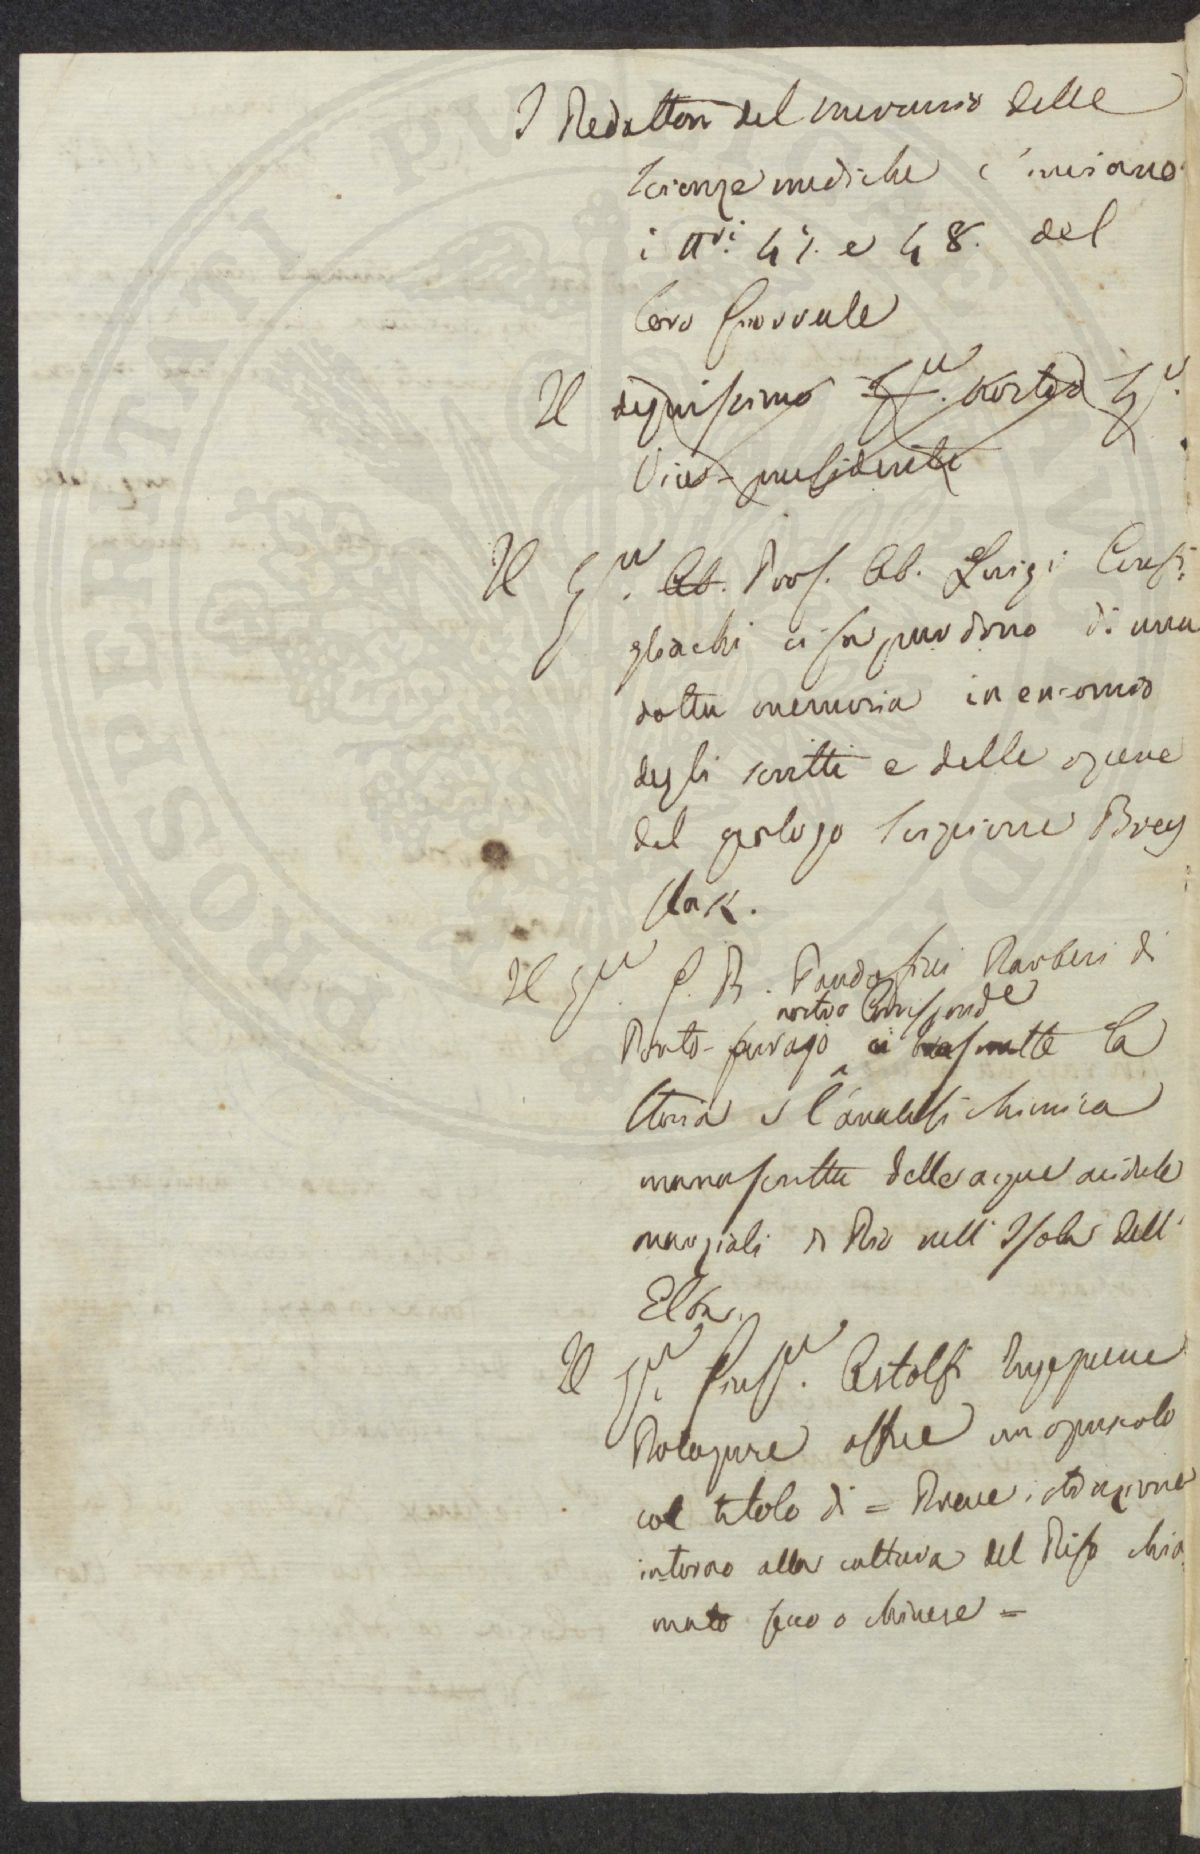 I Redattori del mercurio delle
Scienze mediche c'inviano
i Nri. 47. e 48. del
loro Giornale
Il degnissimo Sigr. nostro Sigr.
Vice-presidente
Il Sigr. Ab. Prof. Ab. Luigi Confi-
gliachi ci fa pur dono di una
dotta memoria in encomio
degli scritti e delle opere
del geologo Scipione Brey
slak.
Il Sigr. G. B. Pandolfini Barberi di
nostro Corrisponde
Porto-ferrajo ci trasmette la
Storia e l'analisi chimica
manoscritta delle acque acidule
marziali di Rio nell'Isola dell'
Elba.
Il Sigr. Giusepe. Astolfi Ingegnere
Bolognese offre un opuscolo
col titolo di = Breve istruzione
intorno alla coltura del Riso chia
mato secco o chinese =
PROSPERITATI PUBLICAE